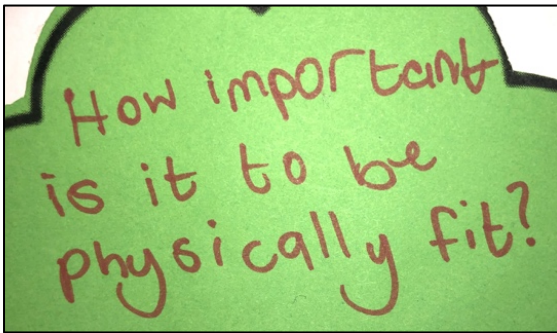 How important
is it to be
physically fit?